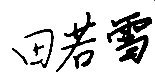 田若雪